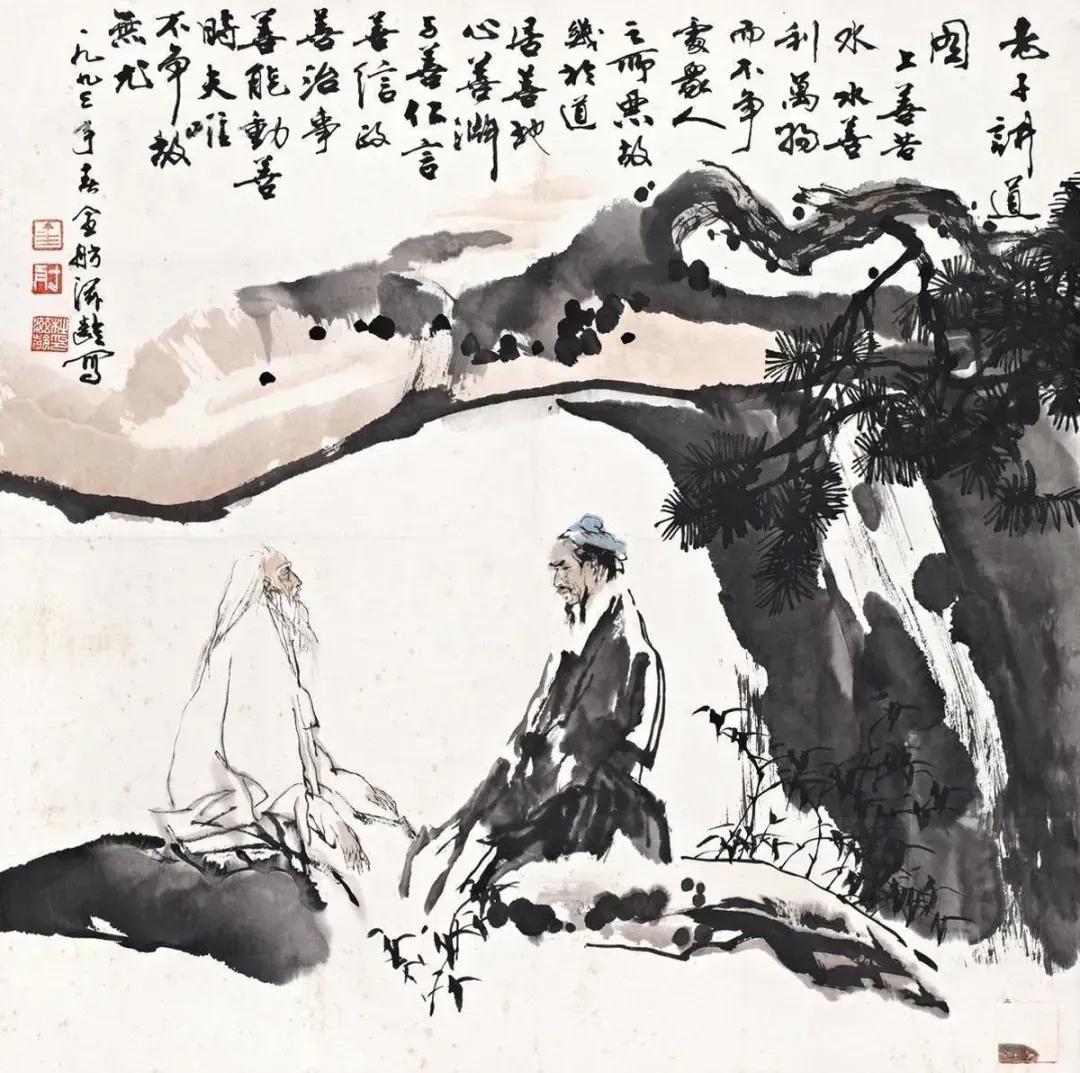 老子講道
图
上善若
水 水善
利萬物
而不争
處衆人
之所惡故
幾於道
居善地
心善渊
与善仁言
善信政
善治事
善能動善
時夫唯
不争故
無尤
一九九三年春金舫滋齡寫